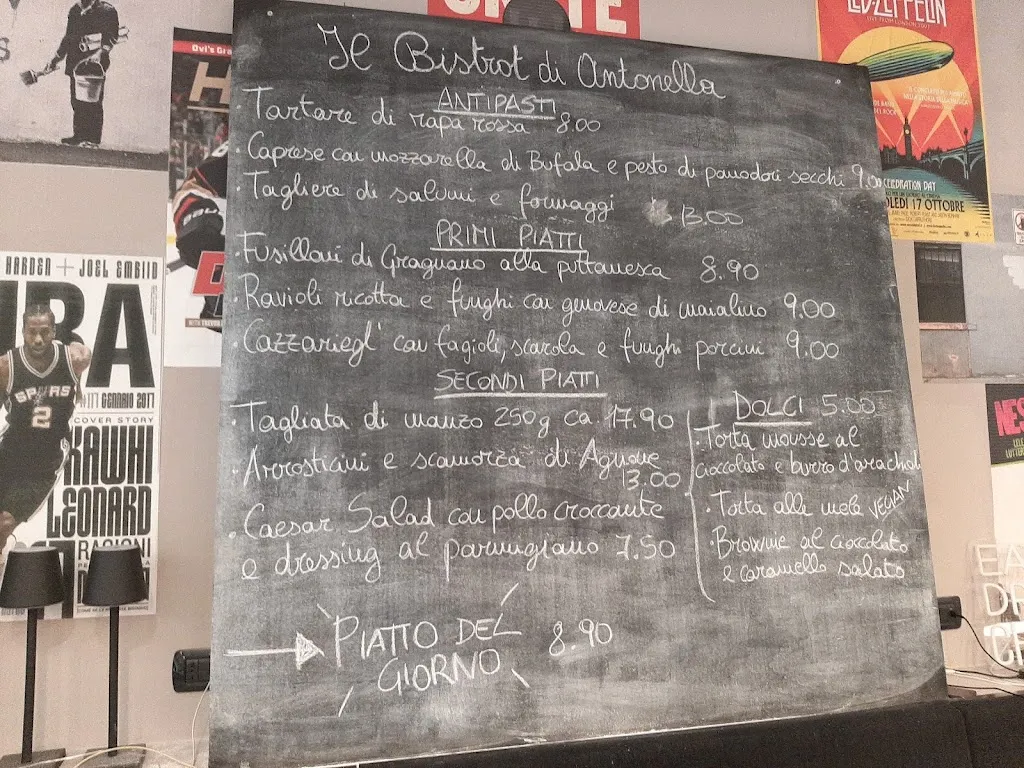 Il Bistrot di Antonella
ANTIPASTI
· Tartare di rapa rossa 8.00
· Caprese con mozzarella di Bufala e pesto di pomodori secchi 9,00
· Tagliere di salumi e formaggi 13.00
PRIMI PIATTI
· Fusilloni di Gragnano alla puttanesca 8.90
· Ravioli ricotta e funghi con genovese di maialino 9.00
· Cazzariegl' con fagioli, scarola e funghi porcini 9.00
SECONDI PIATTI
· Tagliata di manzo 250g ca 17.90
· Arrosticini e scamorza di Agnone
13.00
· Caesar Salad con pollo croccante
e dressing al parmigiano 7.50
DOLCI 5.00
· Torta mousse al
cioccolato e burro d'arachidi
· Torta alle mele VEGAN
· Brownie al cioccolato
e caramello salato
PIATTO DEL
GIORNO 8.90
HARDEN + JOEL EMBIID
BA
SPURS
2
GENNAIO 2017
COVER STORY
KAWHI
LEONARD
RAGIONI
Ovi's Gra
H
LED ZEPPELIN
LIVE FROM LONDON 2007
CELEBRATION DAY
OLEDI 17 OTTOBRE
NES
EA
DR